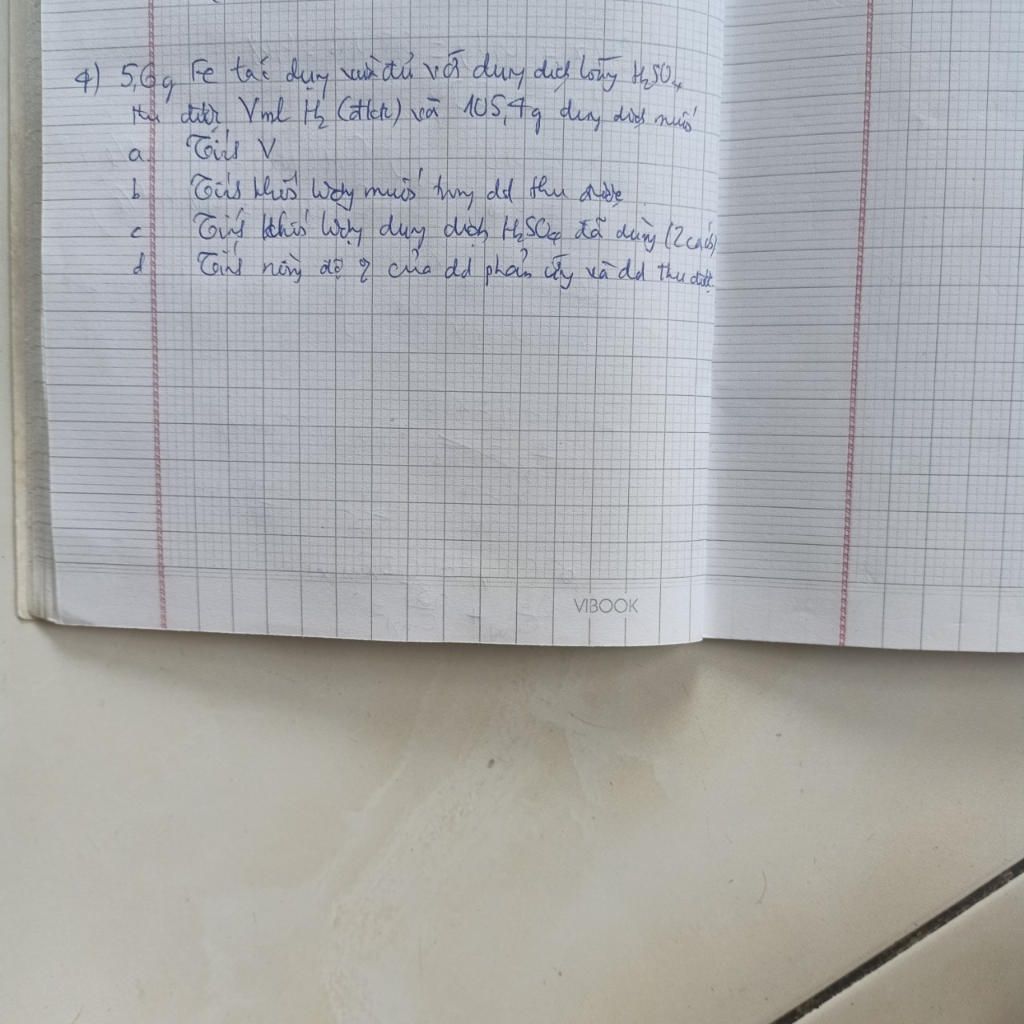 4) 5,6g Fe tác dụng vừa đủ với dung dịch loãng H₂SO₄
thu được Vml H₂ (đktc) và 105,4g dung dịch muối
a Tính V
b Tính khối lượng muối trong dd thu được
c Tính khối lượng dung dịch H₂SO₄ đã dùng (2 cách)
d Tính nồng độ % của dd phản ứng và dd thu được
VIBOOK